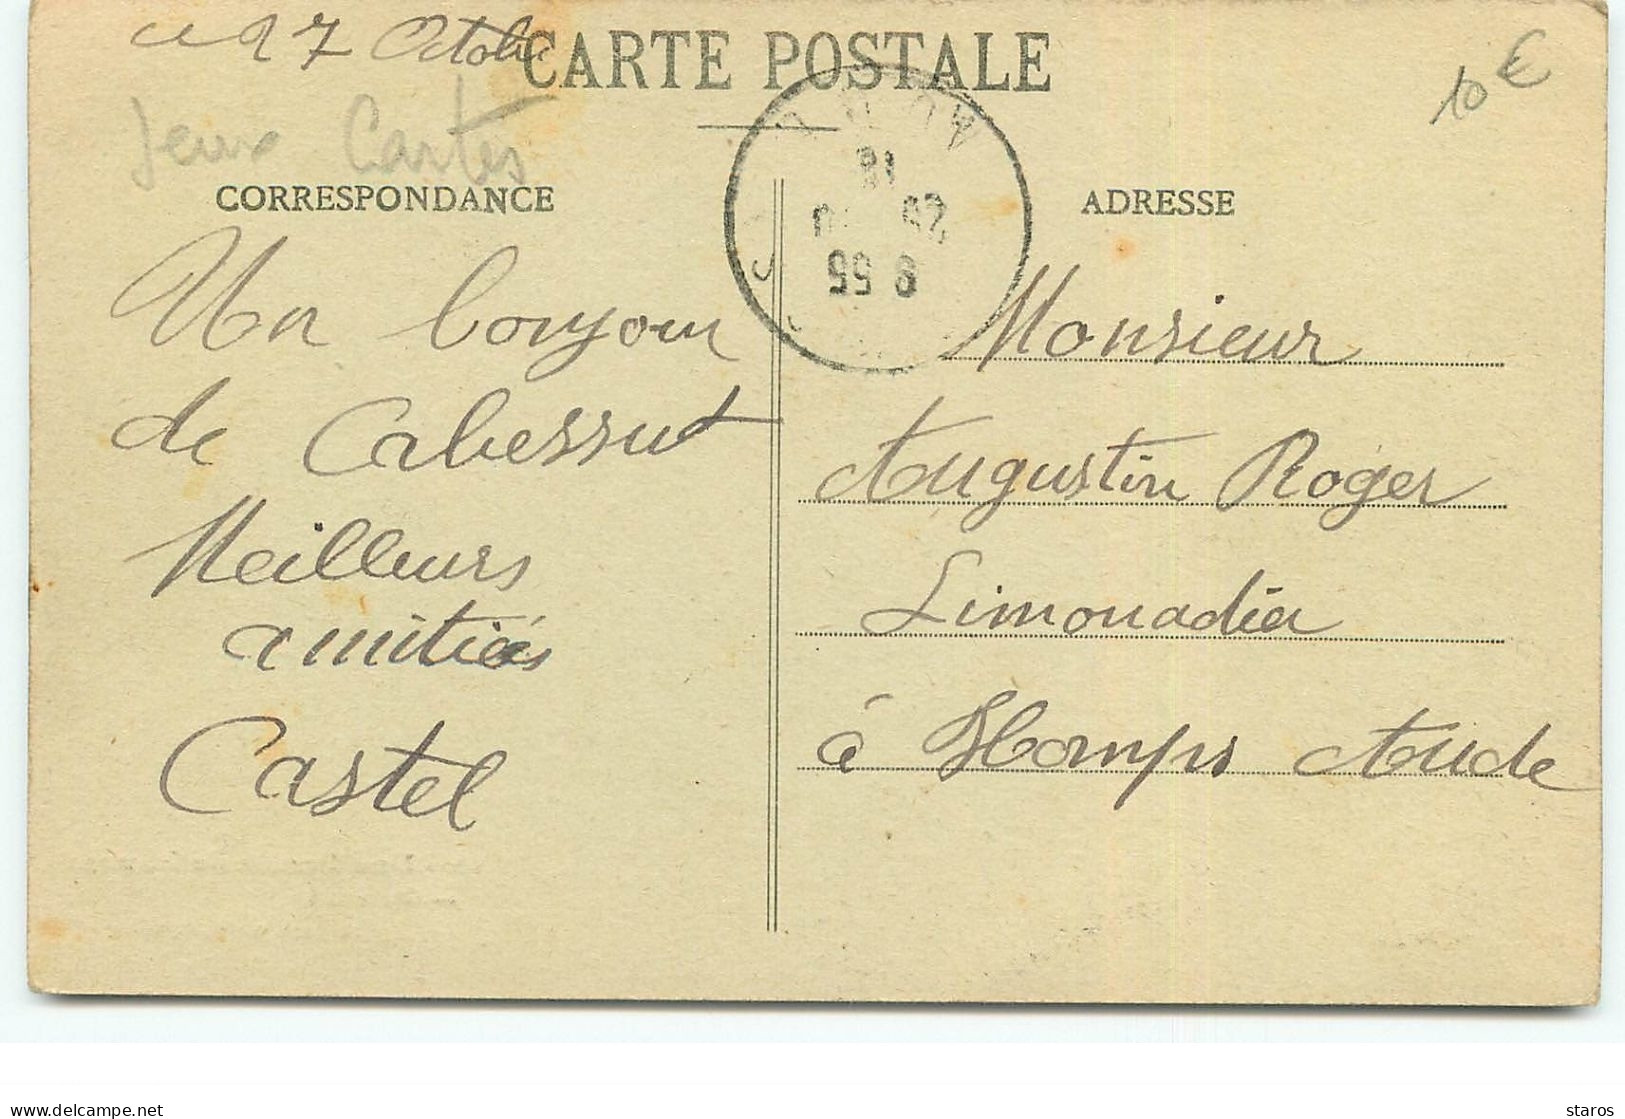 ce 27 Octobre
CARTE POSTALE
10 €
Jeux Cartes
CORRESPONDANCE
ADRESSE
18
8 55
Un bonjour
de Cabessut
Meilleurs
amitiés
Castel
Monsieur
Augustin Roger
Limonadier
à Homps Aude
delcampe.net
staros